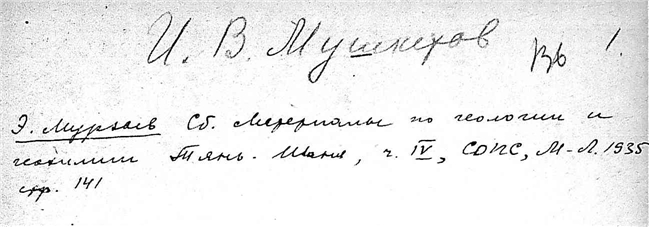 И. В. Мушкетов 1.
Э. Мурзаев Сб. Материалы по геологии и
геохимии Тянь-Шаня, ч. IV, СОПС, М-Л. 1935
стр. 141